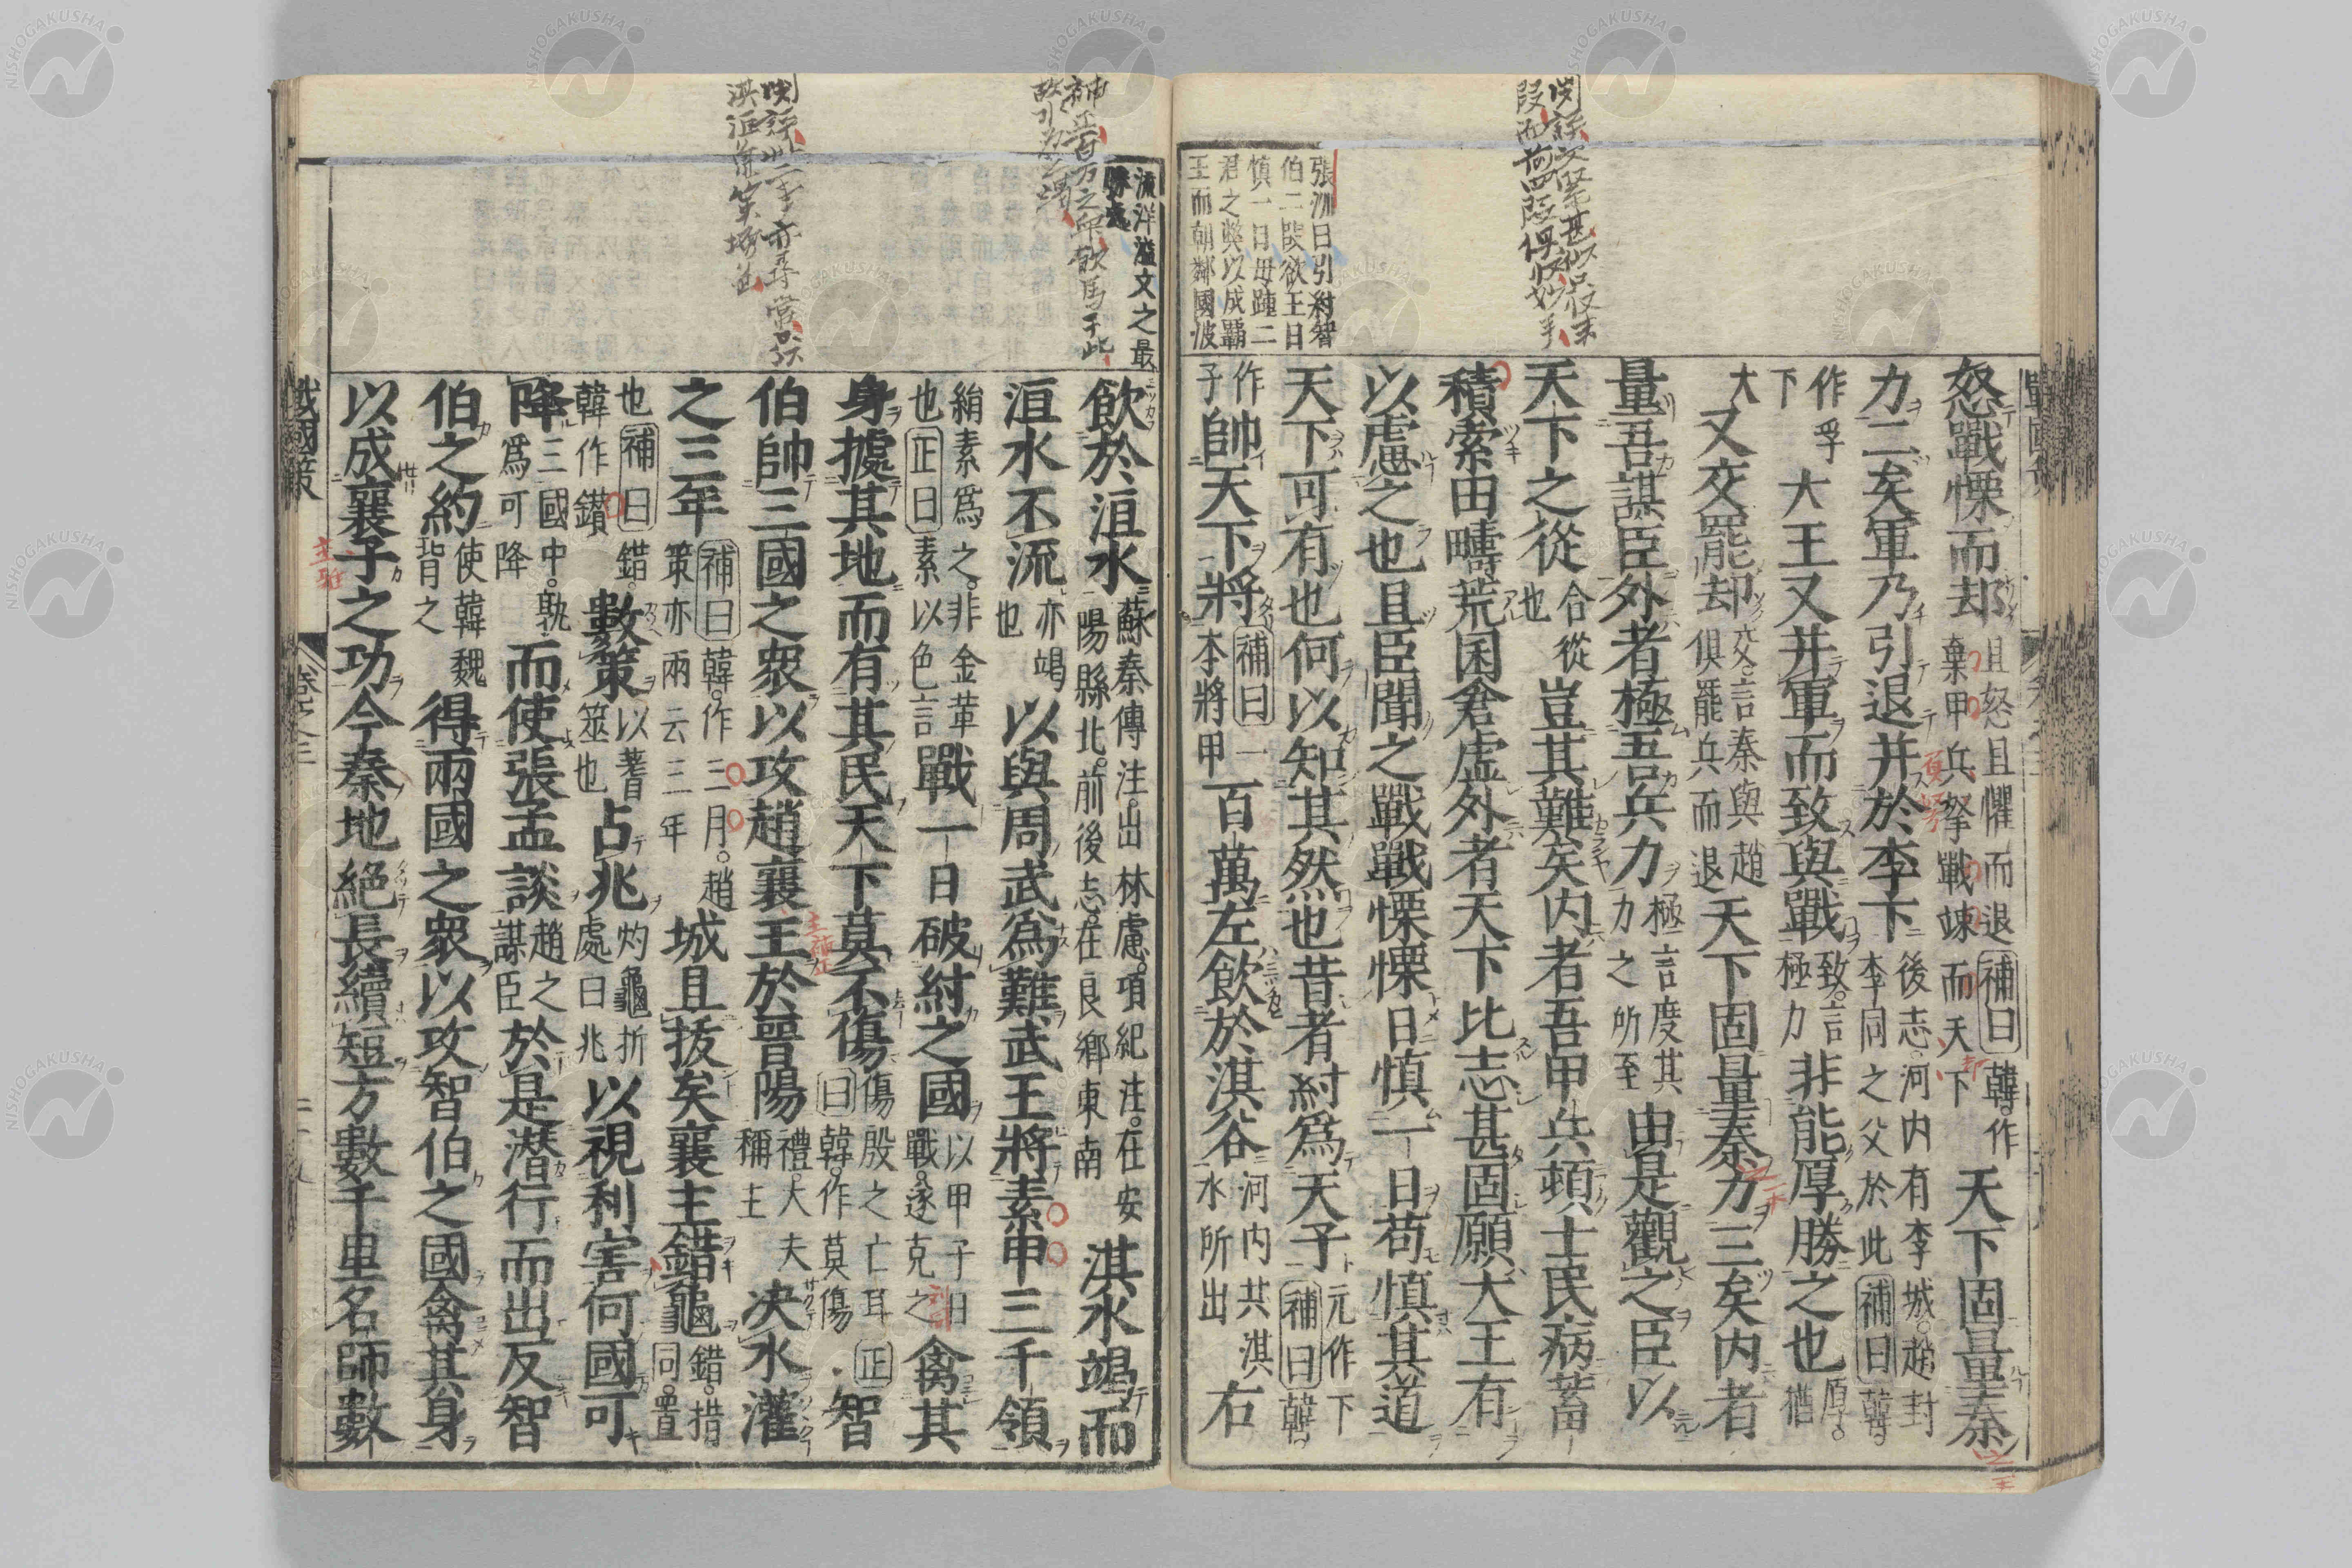 張洲曰引紂智
伯二段欲王日
慎一日毋踵二
君之弊以成覇
王而朝鄰國波
怒戰慄而却 且怒且懼而退補曰韓。作棄甲兵弩戰竦而天下 天下固量秦
力二矣軍乃引退并於李下 後志。河内有李城。趙封李同之父於此補曰韓。
作孚下 大王又并軍而致與戰 致。言極力 非能厚勝之也 厚。猶
大 又交罷却 交。言秦與趙俱罷兵而退 天下固量秦力三矣内者
量吾謀臣外者極吾兵力 極言度其力之所至 由是觀之臣以
天下之從 合從也 豈其難矣内者吾甲兵頓士民病蓄
積索田疇荒囷倉虚外者天下比志甚固願大王有
以慮之也且臣聞之戰戰慄慄日慎一日苟慎其道
天下可有也何以知其然也昔者紂爲天子 元作下補曰韓。
作子 帥天下將 補曰一本將甲 百萬左飲於淇谷 河内共淇水所出 右
流洋溢文之最
勝處
飲於洹水 蘇秦傳注。出林慮。項紀注。在安陽縣北。前後志。在良鄉東南 淇水竭而
洹水不流 亦竭也 以與周武爲難武王將素甲三千領
絹素爲之。非金革也正曰素以色言 戰一日破紂之國 以甲子日戰。遂克之 禽其
身據其地而有其民天下莫不傷 傷殷之亡耳正曰韓。作莫傷 智
伯帥三國之衆以攻趙襄王於晉陽 禮。大夫稱主 決水灌
之三年 補曰韓。作三月。趙策亦兩云三年 城且拔矣襄主錯龜 錯。措同。置
也補曰錯。韓作鑚 數策 以蓍筮也 占兆 灼龜折處曰兆 以視利害何國可
降 三國中。孰爲可降 而使張孟談 趙之謀臣 於是潜行而出反智
伯之約 使韓魏背之 得兩國之衆以攻智伯之國禽其身
以成襄子之功今秦地絶長續短方數千里名師數
戰國策 卷之三 二十九